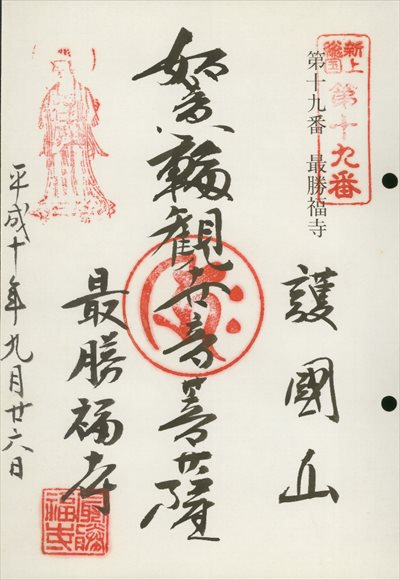 新上総国
第十九番
第十九番 最勝福寺
護國山
如意輪観世音菩薩
最勝福寺
最勝福寺
平成十年九月廿六日